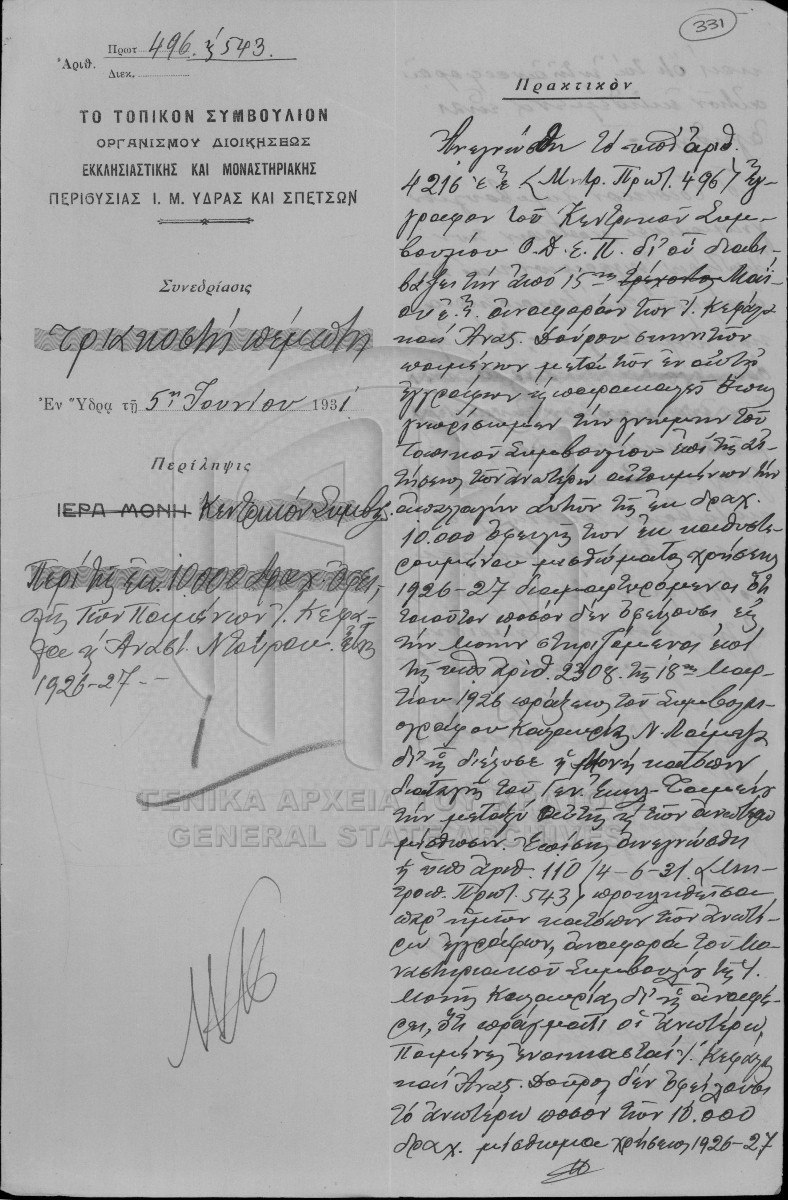 331
Ἀριθ. Πρωτ. 496 ἢ 543.
Διεκ.
ΤΟ ΤΟΠΙΚΟΝ ΣΥΜΒΟΥΛΙΟΝ
ΟΡΓΑΝΙΣΜΟΥ ΔΙΟΙΚΗΣΕΩΣ
ΕΚΚΛΗΣΙΑΣΤΙΚΗΣ ΚΑΙ ΜΟΝΑΣΤΗΡΙΑΚΗΣ
ΠΕΡΙΟΥΣΙΑΣ Ι. Μ. ΥΔΡΑΣ ΚΑΙ ΣΠΕΤΣΩΝ
Συνεδρίασις
τριακοστὴ πέμπτη
Ἐν Ὕδρᾳ τῇ 5ῃ Ἰουνίου 1931
Περίληψις
ΙΕΡΑ ΜΟΝΗ Κεντρικὸν Συμβ.
Περὶ τῆς ἐκ 10.000 δραχ. ὀφει-
λῆς τῶν Ποιμένων Ι. Κεφά-
λα ἢ Ἀναστ. Ντούρου. ἔτη
1926-27.-
Πρακτικὸν
Ἀνεγνώσθη τὸ ὑπ' ἀριθ.
4216 ἐ. ἔ. (Μητρ. Πρωτ. 496) ἔγ-
γραφον τοῦ Κεντρικοῦ Συμ-
βουλίου Ο.Δ.Ε.Π. δι' οὗ διαβι-
βάζει τὴν ἀπὸ 15ης τρέχοντος Μαΐ-
ου ἐ. ἔ. ἀναφορὰν τῶν Ι. Κεφάλα
καὶ Ἀνασ. Δούρου σκηνιτῶν
ποιμένων μετὰ τῶν ἐν αὐτῇ
ἐγγράφων ἢ παρακαλεῖ ὅπως
γνωρίσωμεν τὴν γνώμην τοῦ
Τοπικοῦ Συμβουλίου ἐπὶ τῆς αἰ-
τήσεως τῶν ἀνωτέρω αἰτουμένων τὴν
ἀπαλλαγὴν αὐτῶν τῆς ἐκ δραχ.
10.000 ὀφειλῆς των ἐκ καθυστε-
ρουμένου μισθώματος χρήσεως
1926-27 διαμαρτυρόμενοι ὅτι
τοιοῦτον ποσὸν δὲν ὀφείλουσι εἰς
τὴν Μονὴν στηριζόμενοι ἐπὶ
τῆς ὑπ' ἀριθ. 2308 τῆς 18ης Μαρ-
τίου 1926 πράξεως τοῦ Συμβολαι-
ογράφου Καλαυρίας Ν.
δι' ἧς διέλυσε ἡ Μονὴ κατόπιν
διαταγῆς τοῦ Γεν. Ἐκκλ. Ταμείου
τὴν μεταξὺ αὐτῆς ἢ τῶν ἀνωτέρω
μίσθωσιν. Ἐπίσης ἀνεγνώσθη
ἡ ὑπ' ἀριθ. 110/4-6-31. (Μη-
τροπ. Πρωτ. 543) προκληθεῖσα
παρ' ἡμῶν κατόπιν τῶν ἀνωτέ-
ρω ἐγγράφων, ἀναφορὰ τοῦ Μο-
ναστηριακοῦ Συμβουλίου τῆς Ι.
Μονῆς Καλαυρίας δι' ἧς ἀναφέ-
ρει, ὅτι πράγματι οἱ ἀνωτέρω,
Ποιμένες ἐνοικιασταὶ Ι. Κεφάλας
καὶ Ἀνασ. Δοῦρος δὲν ὀφείλουσι
τὸ ἀνωτέρω ποσὸν τῶν 10.000
δραχ. μίσθωμα χρήσεως 1926-27
ΓΕΝΙΚΑ ΑΡΧΕΙΑ ΤΟΥ ΚΡΑΤΟΥΣ
GENERAL STATE ARCHIVES